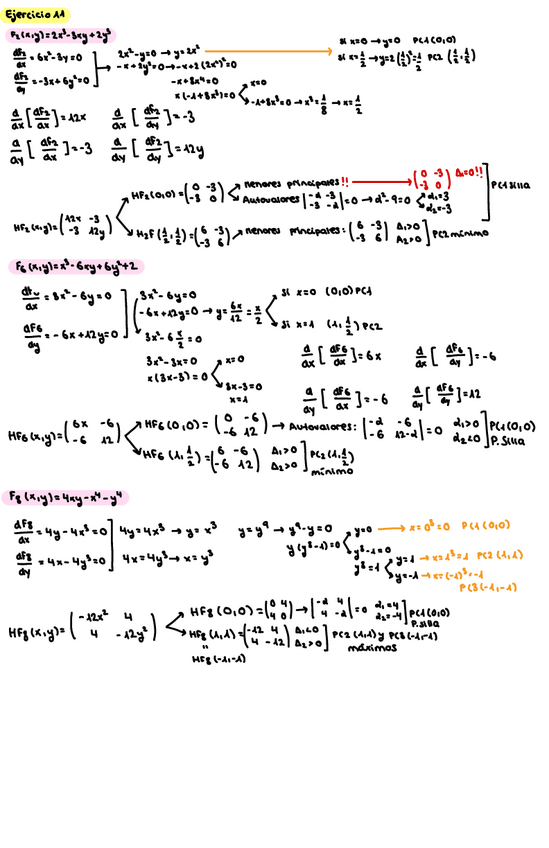 Ejercicio 11
F₂(x,y)=2x³-3xy+2y³
df₂/dx = 6x²-3y=0
df₂/dy = -3x+6y²=0
2x²-y=0 → y=2x²
-x+2y²=0 → -x+2(2x²)²=0
-x+8x⁴=0
x(-1+8x³)=0
x=0
-1+8x³=0 → x³=1/8 → x=1/2
Si x=0 → y=0 PC1(0,0)
Si x=1/2 → y=2(1/2)²=1/2 PC2 (1/2,1/2)
d/dx [df₂/dx]=12x d/dx [df₂/dy]=-3
d/dy [df₂/dx]=-3 d/dy [df₂/dy]=12y
HF₂(x,y)=(12x -3
-3 12y)
HF₂(0,0)=(0 -3
-3 0)
Menores principales!! → (0 -3
-3 0) Δ₁=0!!
Autovalores |-α -3
-3 -α|=0 → α²-9=0
α₁=3
α₂=-3
PC1 silla
H₂F(1/2,1/2)=(6 -3
-3 6) → Menores principales: (6 -3
-3 6) Δ₁>0
Δ₂>0
PC2 mínimo
F₆(x,y)=x³-6xy+6y²+2
= 3x²-6y=0
df₆/dy = -6x+12y=0
3x²-6y=0
-6x+12y=0 → y=6x/12=x/2
3x²-6 x/2=0
3x²-3x=0
x(3x-3)=0
x=0
3x-3=0
x=1
Si x=0 (0,0) PC1
Si x=1 (1,1/2) PC2
d/dx [df₆/dx]=6x d/dx [df₆/dy]=-6
d/dy [df₆/dx]=-6 d/dy [df₆/dy]=12
HF₆(x,y)=(6x -6
-6 12)
HF₆(0,0)=(0 -6
-6 12) → Autovalores: |-α -6
-6 12-α|=0 α₁>0
α₂<0
PC1(0,0)
P.Silla
HF₆(1,1/2)=(6 -6
-6 12) Δ₁>0
Δ₂>0
PC2(1,1/2)
mínimo
F₈(x,y)=4xy-x⁴-y⁴
df₈/dx = 4y-4x³=0
df₈/dy = 4x-4y³=0
4y=4x³ → y=x³
4x=4y³ → x=y³
y=y⁹ → y⁹-y=0
y(y⁸-1)=0
y=0 → x=0³=0 PC1(0,0)
y⁸-1=0
y⁸=1
y=1 → x=1³=1 PC2(1,1)
y=-1 → x=(-1)³=-1
PC3(-1,-1)
HF₈(x,y)=(-12x² 4
4 -12y²)
HF₈(0,0)=(0 4
4 0) → |-α 4
4 -α|=0 α₁=4
α₂=-4
PC1(0,0)
P.silla
HF₈(1,1)=(-12 4
4 -12) Δ₁<0
Δ₂>0
PC2(1,1) y PC3(-1,-1)
máximos
"
HF₈(-1,-1)